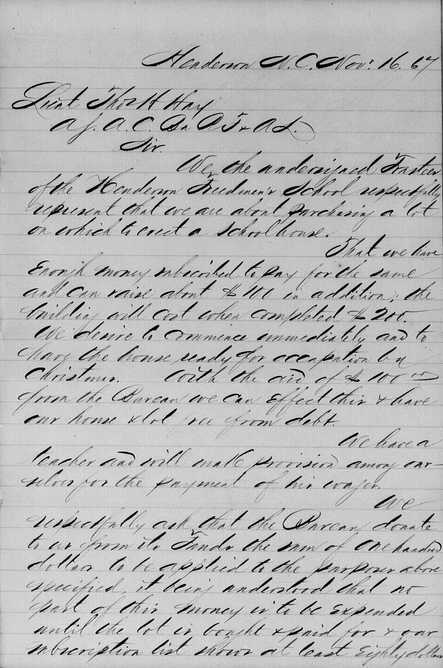 Henderson N.C. Nov. 16, 67
Lieut Thos H Hay
A.S.A.C. Bu R F & A L.
Sir.
We, the undersigned Trustees
of the Henderson Freedmen's School respectfully
represent that we are about purchasing a lot
on which to erect a school house.
That we have
enough money subscribed to pay for the same
and can raise about $100 in addition; the
building will cost when completed $200.
We desire to commence immediately and to
have the house ready for occupation by
Christmas. With the aid of $100 00
from the Bureau we can effect this & have
our house & lot free from debt.
We have a
teacher and will make provision among our
selves for the payment of his wages.
We
respectfully ask that the Bureau donate
to us from its Funds the sum of one hundred
dollars to be applied to the purposes above
specified, it being understood that no
part of this money is to be expended
until the lot is bought & paid for & our
subscription list shows at least Eighty dollars